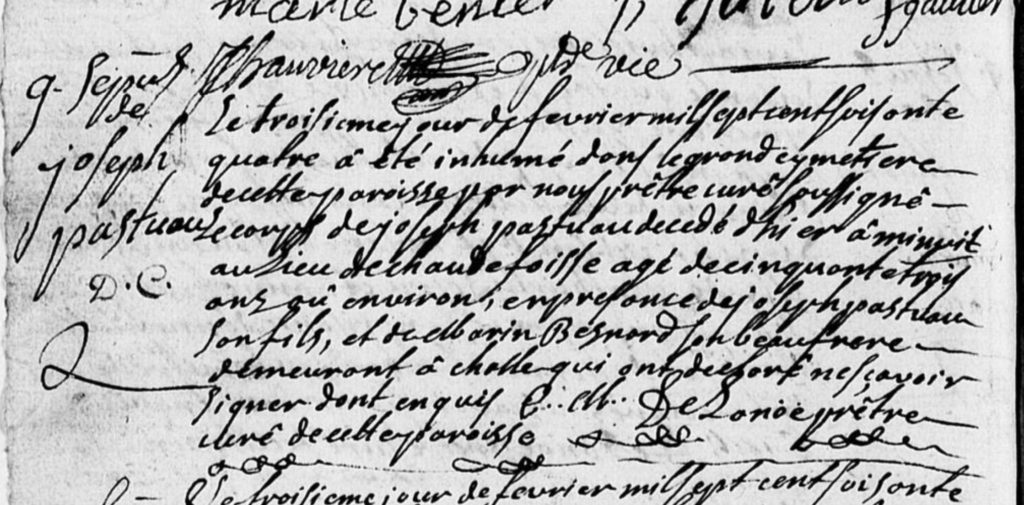 marie
g. Sepre
de
joseph
pastuau
D. C.
Le troisieme jour de fevrier mil sept cent soisonte
quatre â été inhumé dans le grand cymetiere
de cette paroisse par nous prêtre curé soussigné
le corps de joseph pastuau decedé d'hier â minuit
au Lieu de chaudefoisse agé de cinquante trois
ans oû environ, en presance de joseph pastuau
son fils, et de Marin Besnard son beaufrere
demeurant â chasle qui ont declaré ne sçavoir
signer dont enquis C. M. DeLanöe prêtre
curé de cette paroisse
Le troisieme jour de fevrier mil sept cent soisonte